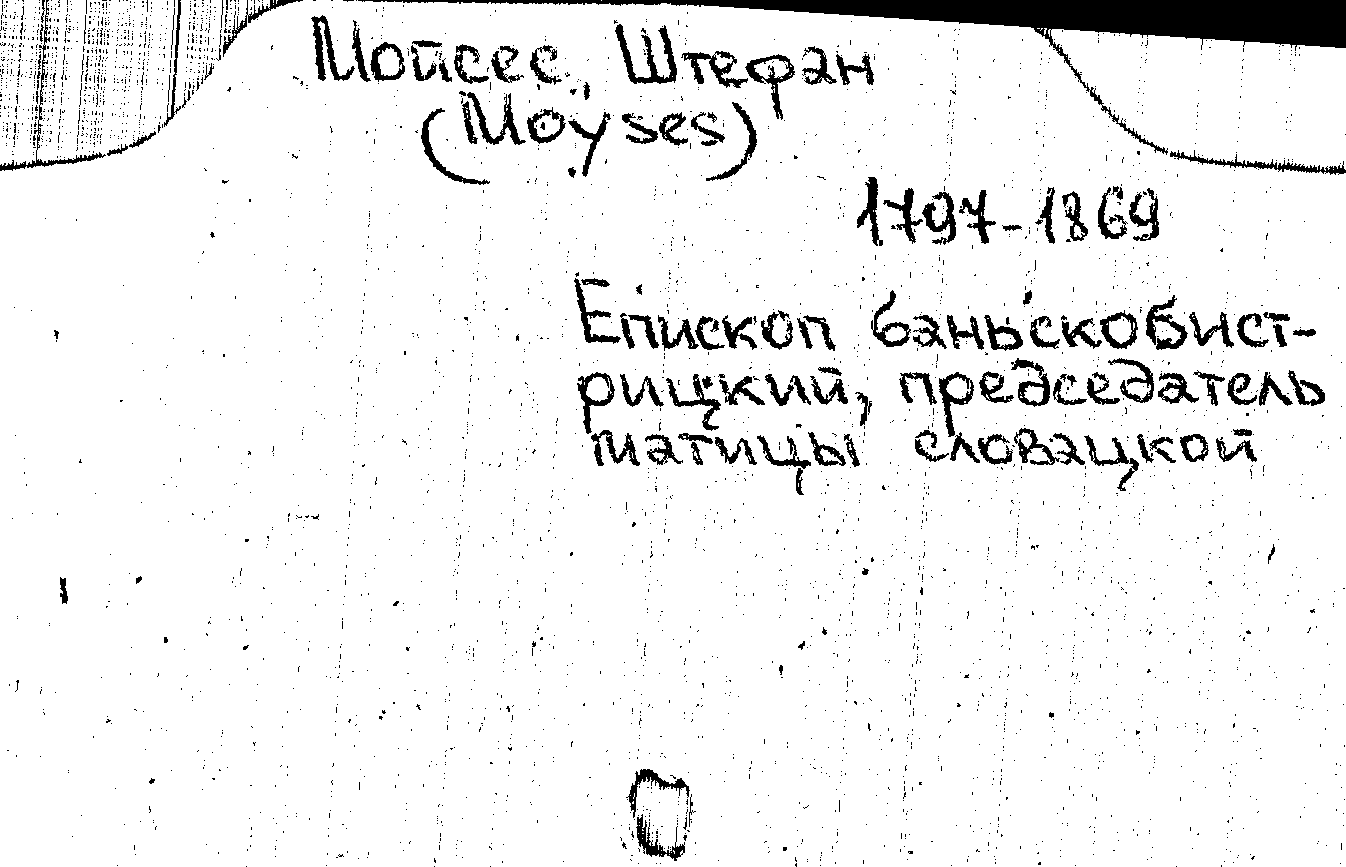 Мойсес, Штефан
(Moyses)
1797-1869
Епископ баньскобист-
рицкий, председатель
матицы словацкой